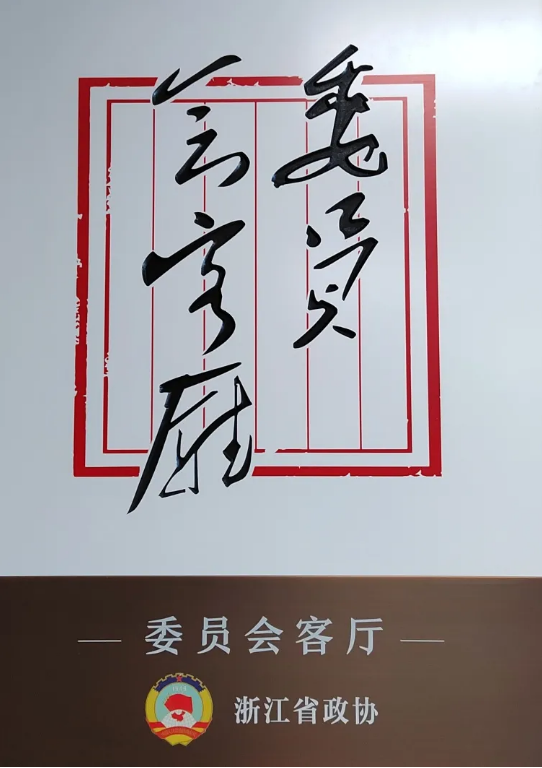 委员
会客厅
委员会客厅
浙江省政协